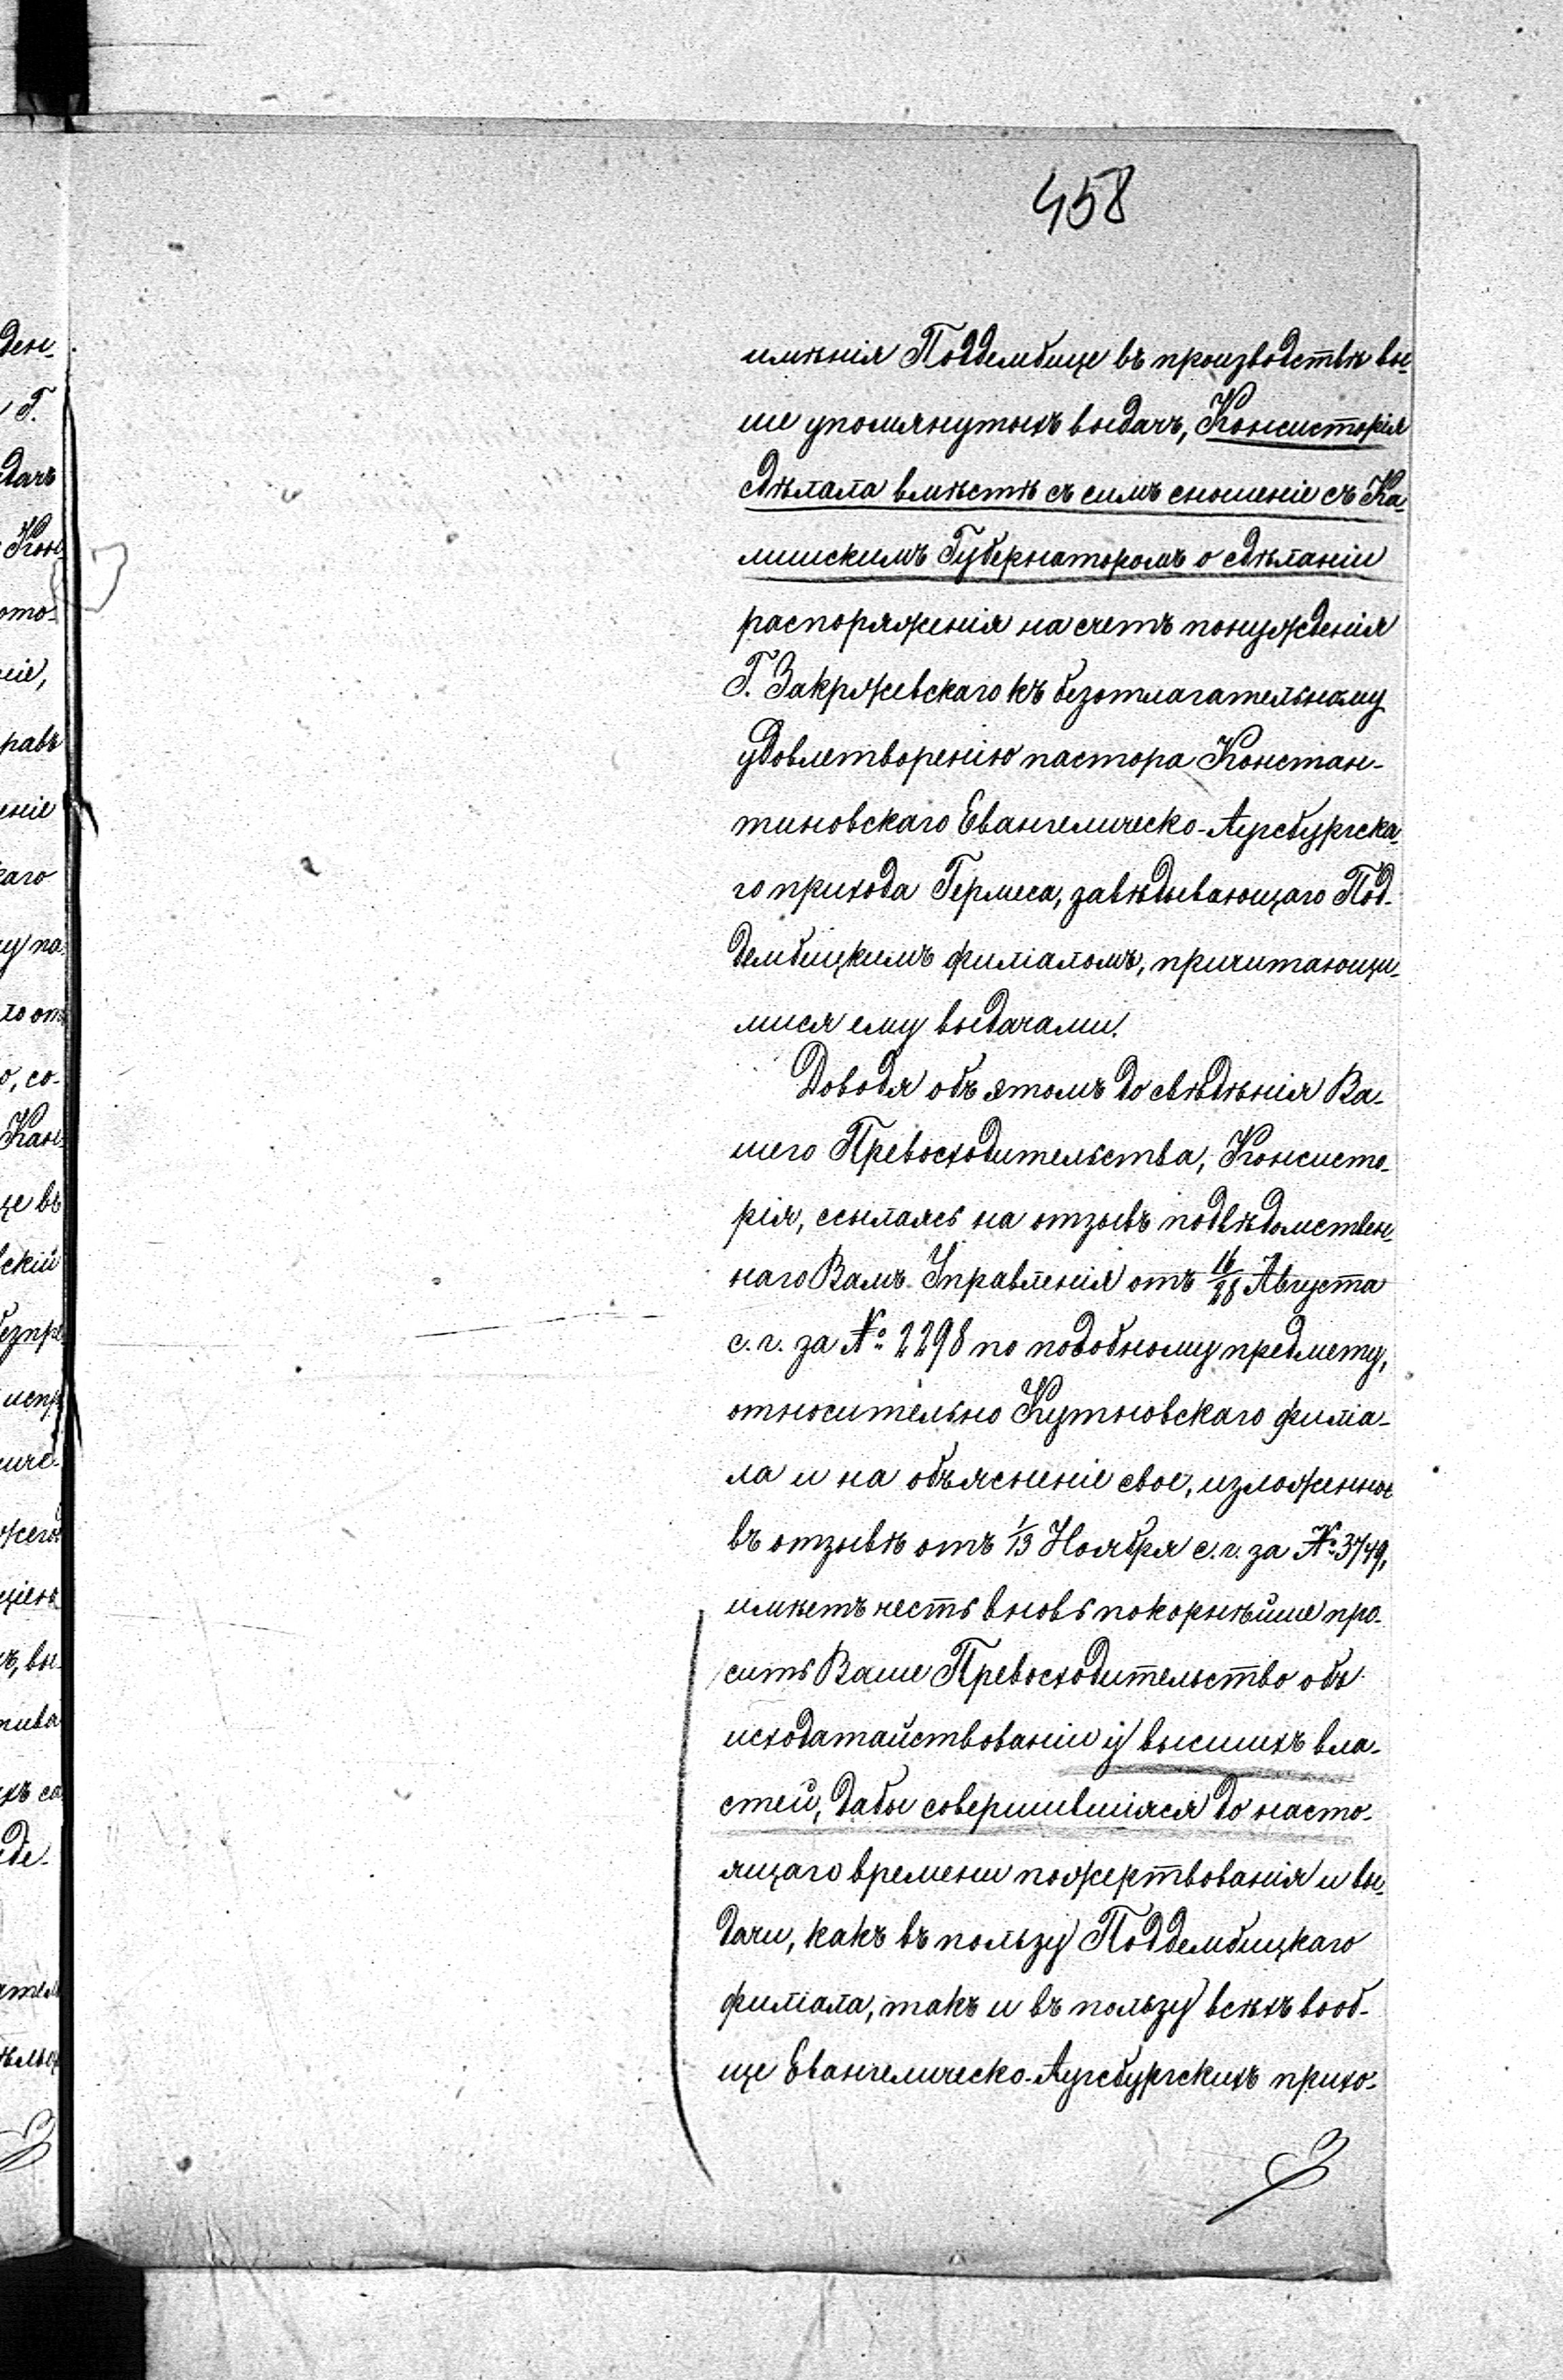 458
имѣнія Поддембице въ производствѣ вы-
ше упомянутыхъ выдачъ, Консисторія
сдѣлала вмѣстѣ съ симъ сношеніе съ Ка-
лишскимъ Губернаторомъ о сдѣланіи
распоряженія на счетъ понужденія
Г. Закржевскаго къ безотлагательному
удовлетворенію пастора Констан-
тиновскаго Евангелическо-Аугсбургска-
го прихода Гермеса, завѣдывающаго Под-
дембицкимъ филіаломъ, причитающи-
мися ему выдачами.
Доводя объ этомъ до свѣдѣнія Ва-
шего Превосходительства, Консисто-
рія, ссылаясь на отзывъ подвѣдомствен-
наго Вамъ Управленія отъ 16/28 Августа
с. г. за № 2298 по подобному предмету,
относительно Кутновскаго филіа-
ла и на объясненіе свое, изложенное
въ отзывѣ отъ 1/13 Ноября с. г. за № 3749,
имѣетъ честь вновь покорнѣйше про-
сить Ваше Превосходительство объ
исходатайствованіи у высшихъ вла-
стей, дабы совершившіяся до насто-
ящаго времени пожертвованія и вы-
дачи, какъ въ пользу Поддембицкаго
филіала, такъ и въ пользу всѣхъ вооб-
ще Евангелическо-Аугсбургскихъ прихо-